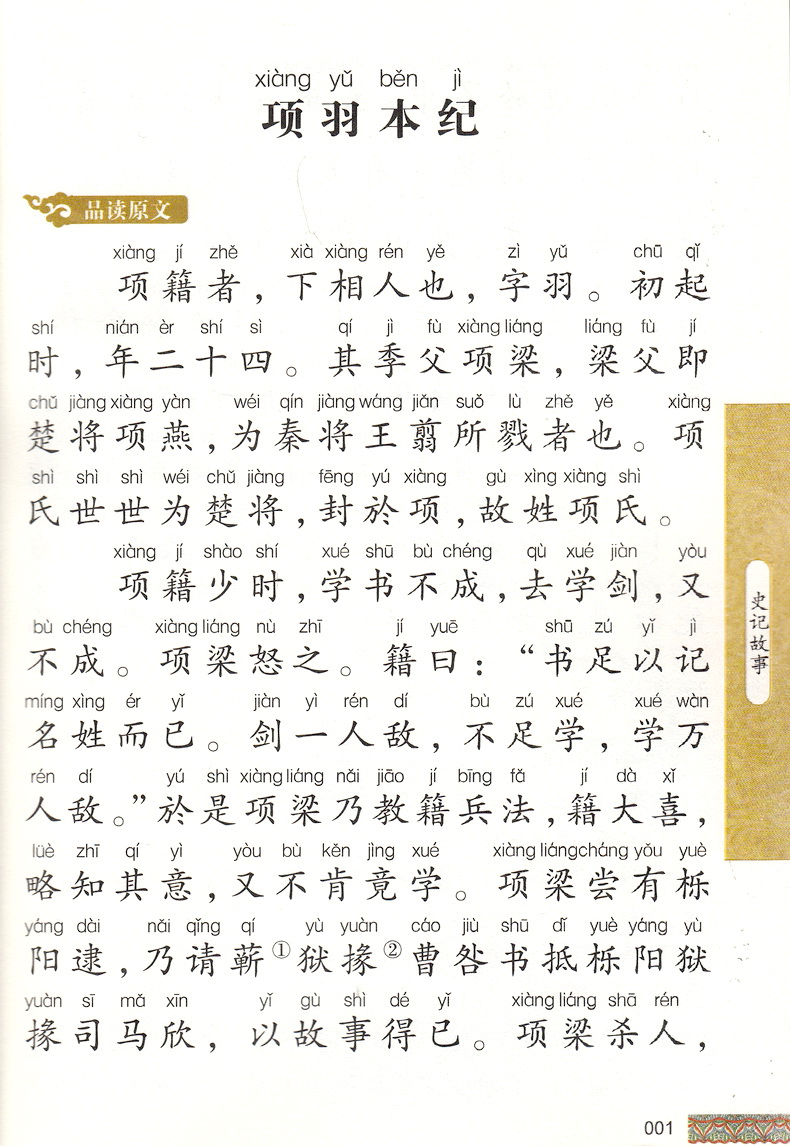 xiàng yǔ běn jì
项羽本纪
品读原文
xiàng jí zhě xià xiàng rén yě zì yǔ chū qǐ
项籍者，下相人也，字羽。初起
shí nián èr shí sì qí jì fù xiàng liáng liáng fù jí
时，年二十四。其季父项梁，梁父即
chǔ jiàng xiàng yàn wéi qín jiàng wáng jiǎn suǒ lù zhě yě xiàng
楚将项燕，为秦将王翦所戮者也。项
shì shì shì wéi chǔ jiàng fēng yú xiàng gù xìng xiàng shì
氏世世为楚将，封於项，故姓项氏。
xiàng jí shào shí xué shū bù chéng qù xué jiàn yòu
项籍少时，学书不成，去学剑，又
bù chéng xiàng liáng nù zhī jí yuē shū zú yǐ jì
不成。项梁怒之。籍曰：“书足以记
míng xìng ér yǐ jiàn yì rén dí bù zú xué xué wàn
名姓而已。剑一人敌，不足学，学万
rén dí yú shì xiàng liáng nǎi jiāo jí bīng fǎ jí dà xǐ
人敌。”於是项梁乃教籍兵法，籍大喜，
lüè zhī qí yì yòu bù kěn jìng xué xiàng liáng cháng yǒu yuè
略知其意，又不肯竟学。项梁尝有栎
yáng dài nǎi qǐng qí yù yuàn cáo jiù shū dǐ yuè yáng yù
阳逮，乃请蕲①狱掾②曹咎书抵栎阳狱
yuàn sī mǎ xīn yǐ gù shì dé yǐ xiàng liáng shā rén
掾司马欣，以故事得已。项梁杀人，
史记故事
001